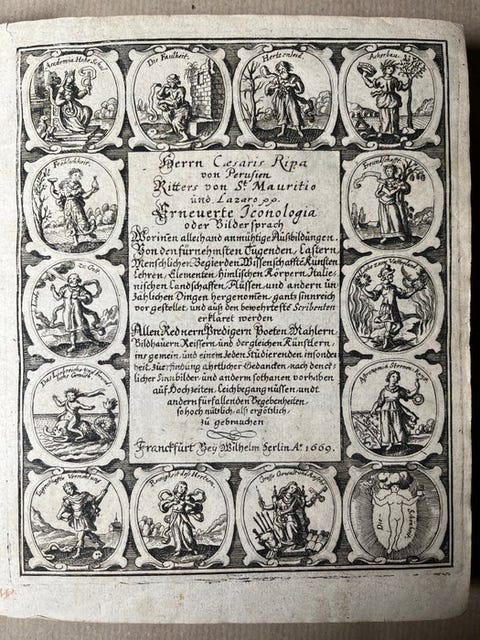 Academia Hohe Schul
Die Faulheit.
Hertzenleid.
Ackerbau.
Freundschafft.
Astronomia Sternen-Kunst
Die Schönheit
Herrn Cæsaris Ripa
von Perusien
Ritters von St. Mauritio
und Lazaro pp.
Erneuerte Iconologia
oder Bildersprach
Worinen allerhand anmühtige Außbildungen,
Von den fürnehmsten Tugenden, Lastern,
Menschlichen Begierden, Wissenschafften, Künsten
Lehren, Elementen, Himlischen Körpern, Italie-
nischen Landschafften, Flüssen, und andern un
zahlichen Dingen hergenomen, gants sinnreich
vorgestellet, und auß den bewehrteste Scribenten
erkläret werden
Allen Rednern, Predigern, Poeten, Mahlern,
Bildhauern, Reissern, und dergleichen Künstlern,
ins gemein, und einem Jeden Studirenden insonder
heit, zur findung ahrtlicher Gedancken, nach denck
licher Sinnbilder, und anderm sothanen vorhaben
auf Hochzeiten, Leichbegangnüssen, undt
andern fürfallenden Begebenheiten,
so hoch nützlich, alß ergötzlich,
zu gebrauchen
Franckfurt Bey Wilhelm Serlin. Ao 1669.